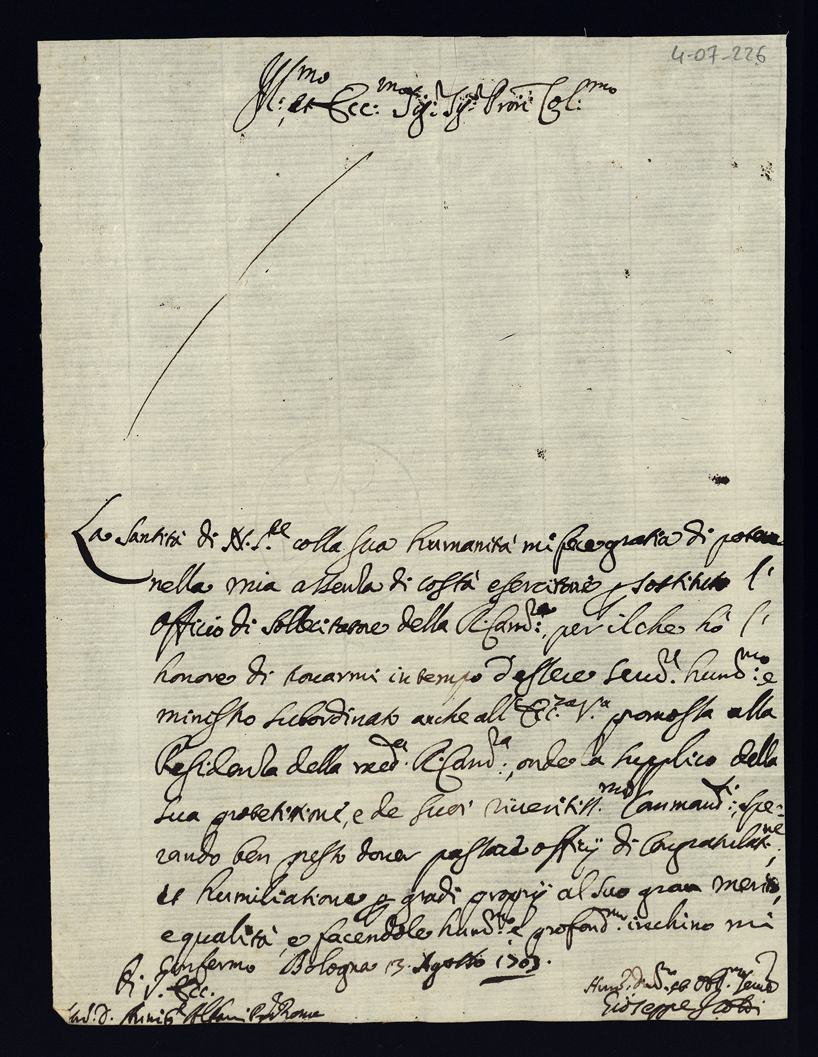 4-07-226
Ill:mo et Ecc:mo Sig:r Sig:r Pron Col:mo
La Santità di N. S.re colla sua humanità mi fece gratia di poter
nella mia assenza di costà esercitare p sostituto l'
officio di Sollecitatore della R. Cam:ra, per il che hò l'
honore di trouarmi in tempo d'essere seru:re hum:mo e
ministro subordinato anche all' Ecc:za V.a promossa alla
Residenza della med.a R. Cam:ra, onde la supplico della
sua protetione, e de suoi riueritiss.mi Commandi:, spe-
rando ben presto douer passare officij di Congratulat:ne
et humiliatione p gradi proprij al suo gran merito,
e qualità, e facendole hum:e profond:mo inchino mi
confermo Bologna 13. Agosto 1703.
Di V. Ecc.
Giuseppe
Roma